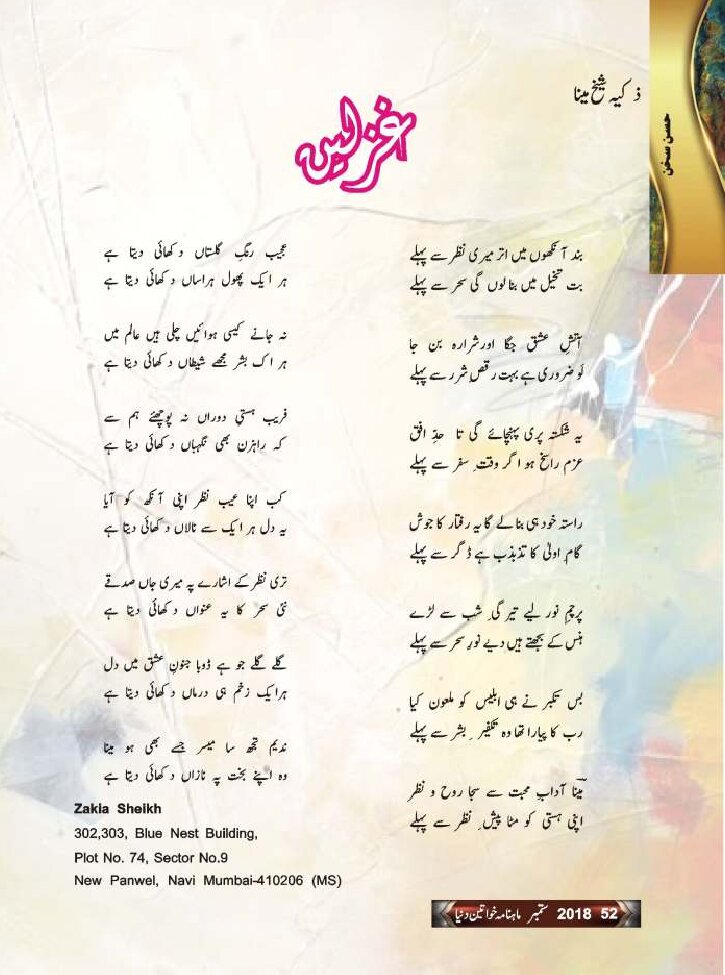 ذکیہ شیخ مینا
حسن سخن
غزلیں
بند آنکھوں میں اتر میری نظر سے پہلے
بت تخیل میں بنا لوں گی سحر سے پہلے
آتشِ عشق جگا اور شرارہ بن جا
لو ضروری ہے بہت رقصِ شرر سے پہلے
یہ شکستہ پری پہنچائے گی تا حدِ افق
عزم راسخ ہو اگر وقتِ سفر سے پہلے
راستہ خود ہی بنالے گا یہ رفتار کا جوش
گامِ اولیٰ کا تذبذب ہے ڈگر سے پہلے
پرچمِ نور لیے تیرگیِ شب سے لڑے
ہنس کے بجھتے ہیں دیے نورِ سحر سے پہلے
بس تکبر نے ہی ابلیس کو ملعون کیا
رب کا پیارا تھا وہ تکفیرِ بشر سے پہلے
مینا آدابِ محبت سے سجا روح و نظر
اپنی ہستی کو مٹا پیشِ نظر سے پہلے
عجیب رنگِ گلستاں دکھائی دیتا ہے
ہر ایک پھول ہراساں دکھائی دیتا ہے
نہ جانے کیسی ہوائیں چلی ہیں عالم میں
ہر اک بشر مجھے شیطاں دکھائی دیتا ہے
فریب ہستیِ دوراں نہ پوچھئے ہم سے
کہ راہزن بھی نگہباں دکھائی دیتا ہے
کب اپنا عیب نظر اپنی آنکھ کو آیا
یہ دل ہر ایک سے نالاں دکھائی دیتا ہے
تری نظر کے اشارے پہ میری جاں صدقے
نئی سحر کا یہ عنواں دکھائی دیتا ہے
گلے گلے جو ہے ڈوبا جنونِ عشق میں دل
ہر ایک زخم ہی درماں دکھائی دیتا ہے
ندیم تجھ سا میسر جسے بھی ہو مینا
وہ اپنے بخت پہ نازاں دکھائی دیتا ہے
Zakia Sheikh
302,303, Blue Nest Building,
Plot No. 74, Sector No.9
New Panwel, Navi Mumbai-410206 (MS)
ماہنامہ خواتین دنیا ستمبر 2018 52